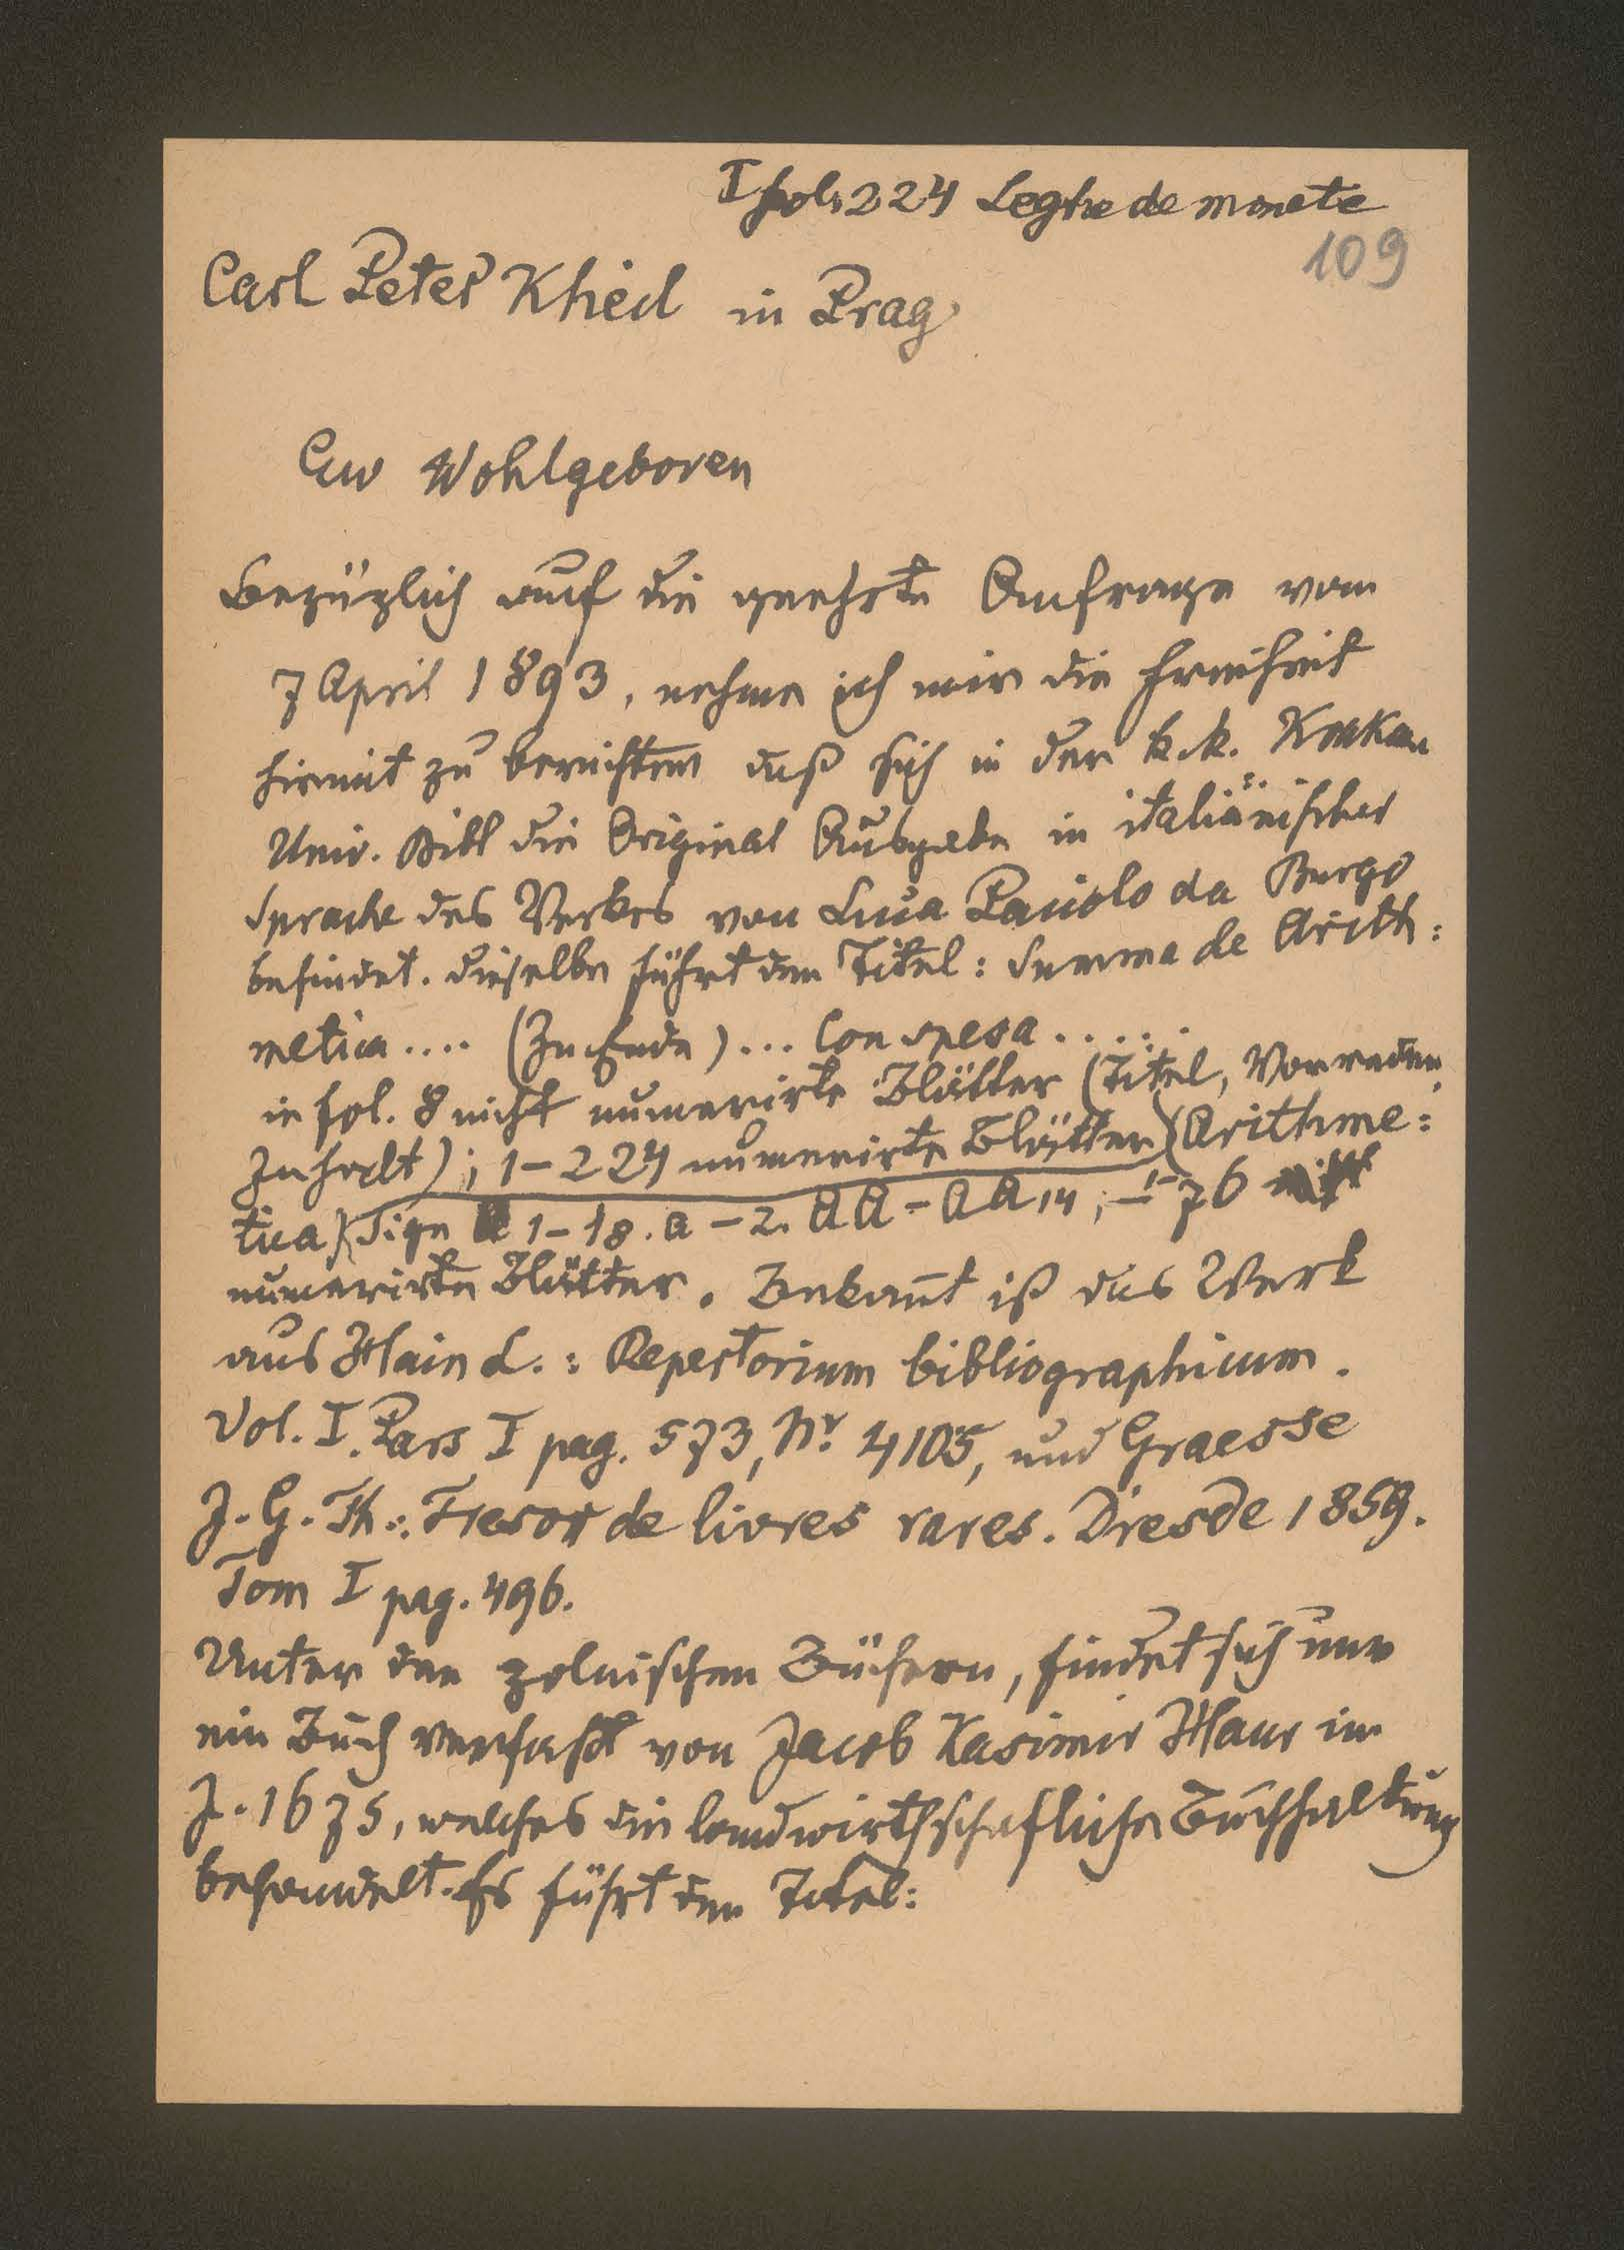 I fol. 224 Leghe de monete
109
Carl Peter Kheil in Prag
Ew Wohlgeboren
Bezüglich auf die geehrte Anfrage vom
7 April 1893, nehme ich mir die Freiheit
hiermit zu berichten daß sich in der k. k. Krakau
Univ. Bibl die Original Ausgabe in italiänischer
Sprache des Werkes von Luca Paciolo da Burgo
befindet. Dieselbe führt den Titel: Summa de Arith:
metica .... (Zu Ende) ... Con spesa .....
in fol. 8 nicht numerirte Blätter (Titel, Vorreden,
Inhalt); 1-224 numerirte Blätter (Arithme:
tica) Sign 1-18. a - 2. AA - AA 14; 1-76
numerirte Blätter. Bekannt iß das Werk
aus Hain L.: Repertorium bibliographicum.
Vol. I. Pars I pag. 573, Nr. 4105, und Graesse
J. G. Th.: Tresor de livres rares. Dresde 1859.
Tom I pag. 496.
Unter den polnischen Büchern, findet sich nur
ein Buch verfaßt von Jacob Kasimir Haur im
J. 1675, welches die landwirthschafliche Buchhaltung
behandelt. Es führt den Titel: